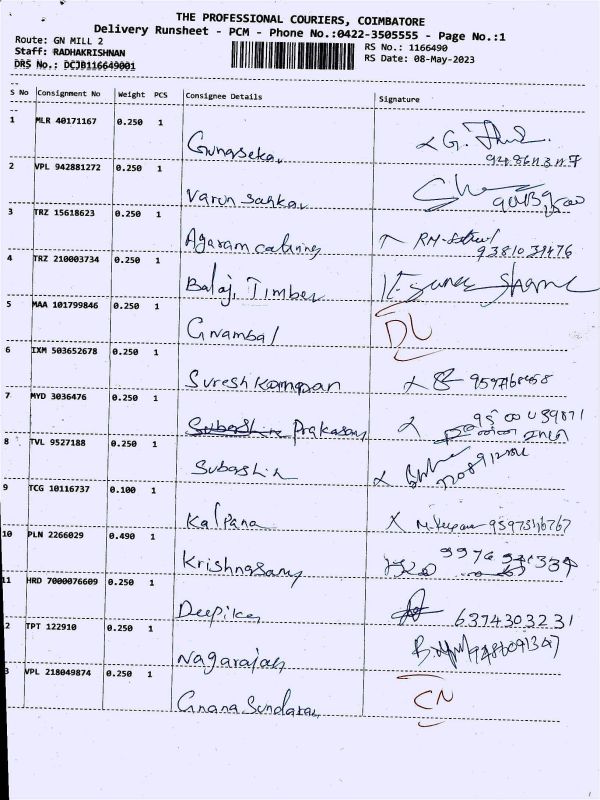 THE PROFESSIONAL COURIERS, COIMBATORE
Delivery Runsheet - PCM - Phone No.:0422-3505555 - Page No.:1
Route: GN MILL 2
RS No.: 1166490
Staff: RADHAKRISHNAN
RS Date: 08-May-2023
DRS No.: DCJB116649001
S No Consignment No Weight PCS Consignee Details Signature
1 MLR 40171167 0.250 1
Gunasekar
2 VPL 942881272 0.250 1
Varun Sankar
3 TRZ 15618623 0.250 1
Agaram catering
9381039476
4 TRZ 210003734 0.250 1
Balaji Timber
5 MAA 101799846 0.250 1
Gnambal DL
6 IXM 503652678 0.250 1
Suresh Kannan
7 MYD 3036476 0.250 1
Subashin Prakasam
8 TVL 9527188 0.250 1
Subashin
9 TCG 10116737 0.100 1
Kalpana
10 PLN 2266029 0.490 1
Krishnasamy
11 HRD 7000076609 0.250 1
Deepika 6374303231
2 TPT 122910 0.250 1
Nagarajan
3 VPL 218049874 0.250 1
Gnana Sundaram CN